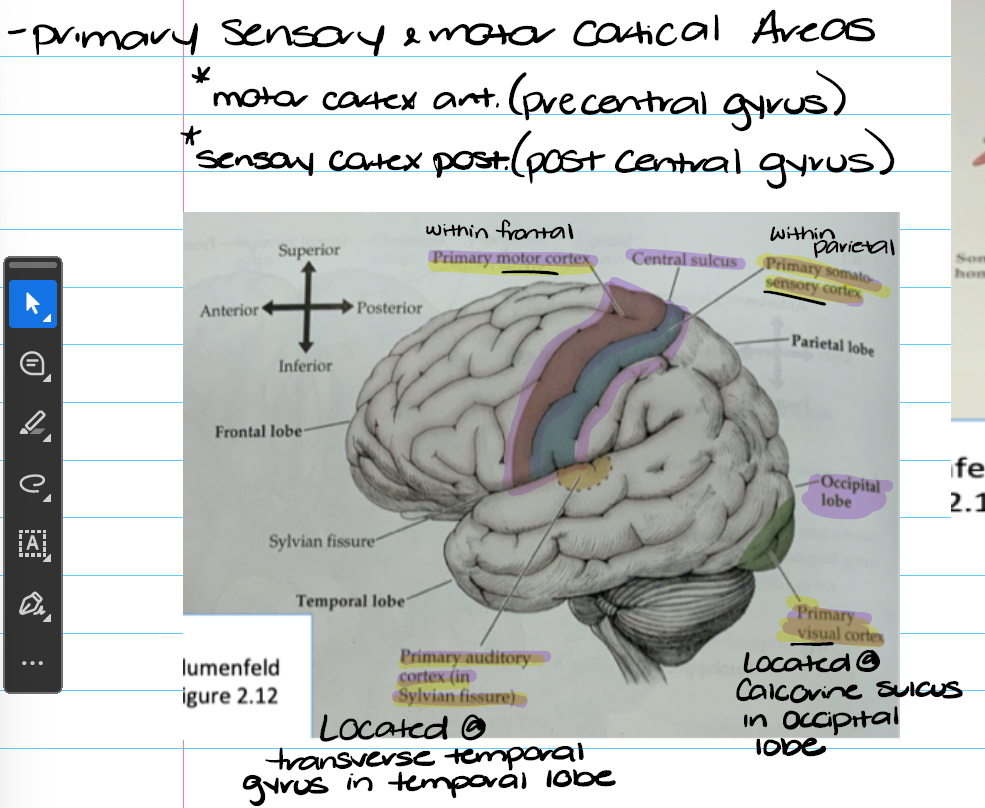 -primary sensory & motor cortical Areas
*motor cortex ant. (precentral gyrus)
*sensory cortex post. (post central gyrus)
within frontal
within parietal
Superior
Primary motor cortex
Central sulcus
Primary somato-
sensory cortex
Anterior
Posterior
Inferior
Parietal lobe
Frontal lobe
Occipital
lobe
Sylvian fissure
Temporal lobe
Primary
visual cortex
Primary auditory
cortex (in
Sylvian fissure)
lumenfeld
igure 2.12
Located @
Calcarine sulcus
in occipital
lobe
Located @
transverse temporal
gyrus in temporal lobe
A
nfe
2.1